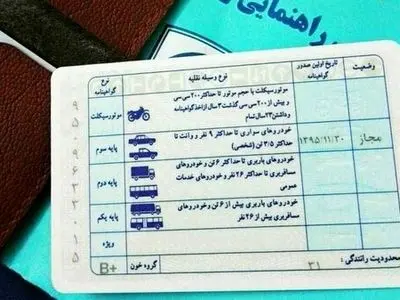 راهنمایی و
وضعیت
تاریخ اولین صدور گواهینامه
نوع وسیله نقلیه
نوع گواهینامه
موتورسیکلت با حجم موتور تا حداکثر ۲۰۰ سی سی
و بیش از ۲۰۰ سی سی گذشت ۳ سال از اخذ گواهینامه
وداشتن ۲۳ سال تمام
موتورسیکلت
مجاز
۱۳۹۵/۱۱/۳۰
خودروهای سواری تا حداکثر ۹ نفر و وانت تا
حداکثر ۳/۵ تن (شخصی)
پایه سوم
خودروهای باربری تا حداکثر ۶ تن و خودروهای
مسافربری تا حداکثر ۲۶ نفر و خودروهای خدمات
عمومی
پایه دوم
خودروهای باربری بیش از ۶ تن و خودروهای
مسافربری بیش از ۲۶ نفر
پایه یکم
ویژه
محدودیت رانندگی :
۳۱
گروه خون :
B+